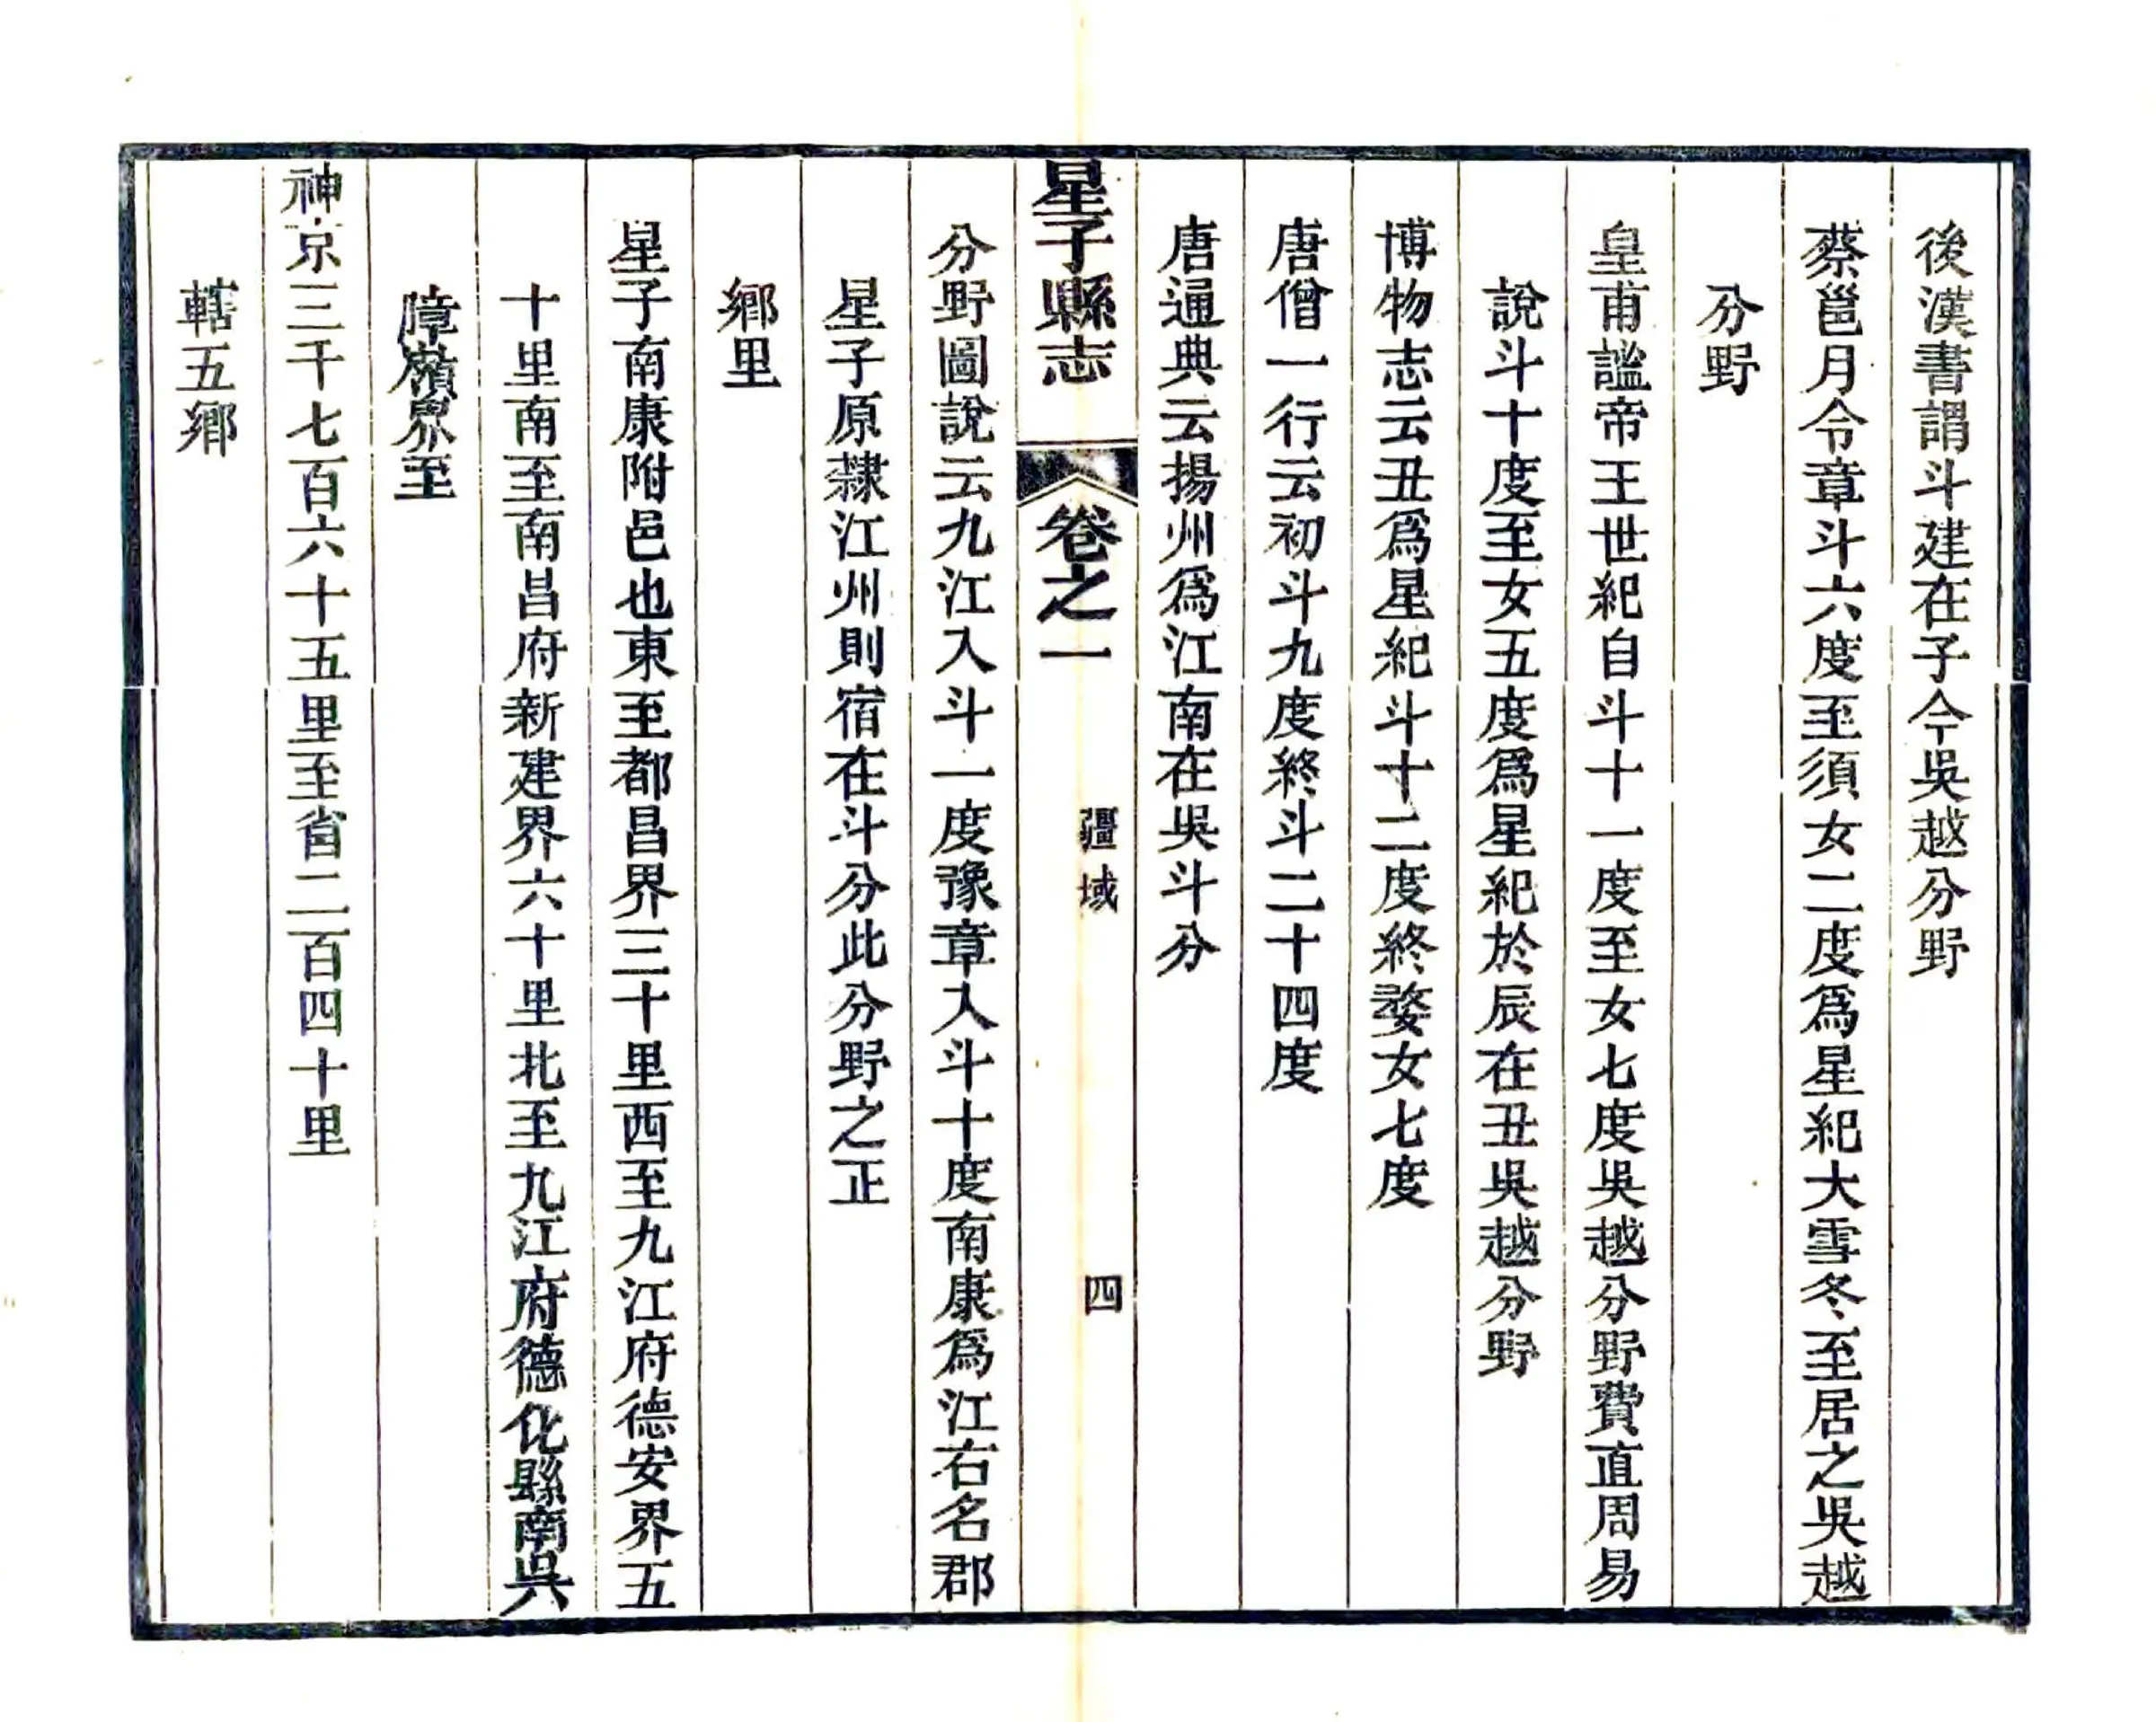 後漢書謂斗建在子今吳越分野
蔡邕月令章斗六度至須女二度爲星紀大雪冬至居之吳越
分野
皇甫謐帝王世紀自斗十一度至女七度吳越分野費直周易
說斗十度至女五度爲星紀於辰在丑吳越分野
博物志云丑爲星紀斗十二度終婺女七度
唐僧一行云初斗九度終斗二十四度
唐通典云揚州爲江南在吳斗分
星子縣志 卷之一 疆域 四
分野圖說云九江入斗一度豫章入斗十度南康爲江右名郡
星子原隸江州則宿在斗分此分野之正
鄉里
星子南康附邑也東至都昌界三十里西至九江府德安界五
十里南至南昌府新建界六十里北至九江府德化縣南吳
障嶺界至
神京三千七百六十五里至省二百四十里
轄五鄉